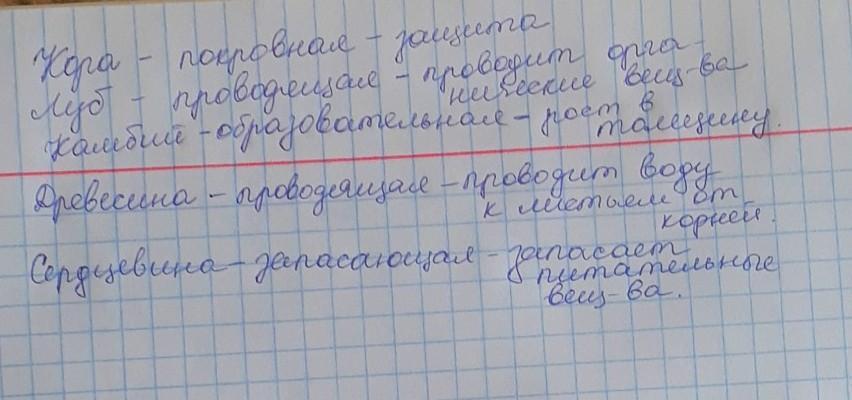 Кора - покровная - защита
Луб - проводящая - проводит орга-
нические вещ-ва
Камбий - образовательная - рост в
толщину.
Древесина - проводящая - проводит воду
к листьям от
корней.
Сердцевина - запасающая - запасает
питательные
вещ-ва.